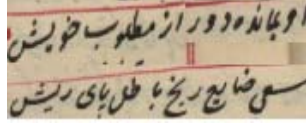 او بمانده دور از مطلوب خویش
سعی ضایع رنج باطل پای ریش